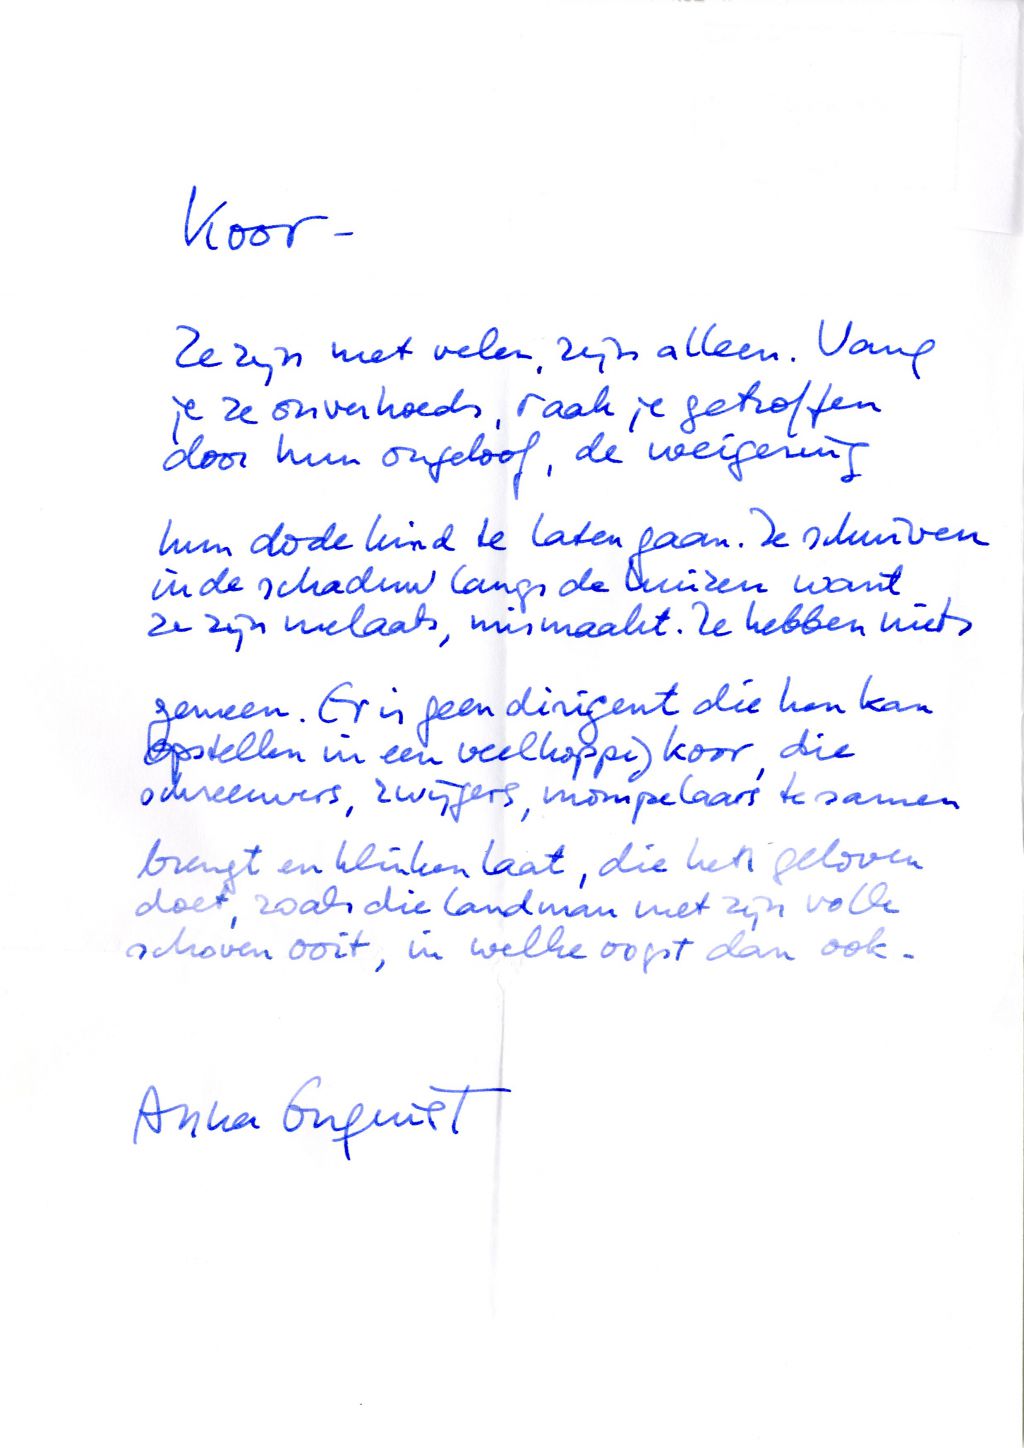 Koor -
Ze zijn met velen, zijn alleen. Vang
je ze onverhoeds, raak je getroffen
door hun ongeloof, de weigering
hun dode kind te laten gaan. Ze schuiven
in de schaduw langs de huizen want
ze zijn melaats, mismaakt. Ze hebben niets
gemeen. Er is geen dirigent die hen kan
opstellen in een veelkoppig koor, die
schreeuwers, zwijgers, mompelaars te samen
brengt en klinken laat, die hen geloven
doet, zoals die landman met zijn volle
schoven ooit, in welke oogst dan ook.
Anna Enquist